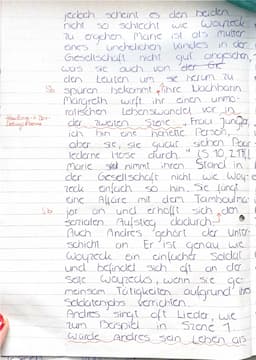 jedoch scheint es den beiden
nicht so schlecht wie Woyzeck
zu ergehen. Marie ist als Mutter
eines unehelichen Kindes in der
Gesellschaft nicht gut angesehen,
was sie auch von der
den Leuten um sie herum zu
spüren bekommt. Ihre Nachbarin
Margreth wirft ihr einen unmo-
ralischen Lebenswandel vor in
der zweiten Szene „Frau Jungfer,
ich bin eine honette Person,
aber sie, sie guckt sieben Paar
lederne Hose durch." (S.10, Z.17f.)
Marie nimmt ihren Stand in
der Gesellschaft nicht wie Woy-
zeck einfach so hin. Sie fängt
eine Affäre mit dem Tambourma-
jor an und erhofft sich den
sozialen Aufstieg dadurch.
Auch Andres gehört der Unter-
schicht an. Er ist genau wie
Woyzeck ein einfacher Soldat
und befindet sich oft an der
Seite Woyzecks, wenn sie ge-
meinsam Tätigkeiten aufgrund ihres
Soldatenjobs verrichten.
Andres singt oft Lieder, wie
zum Beispiel in Szene 1.
Würde Andres sein Leben als